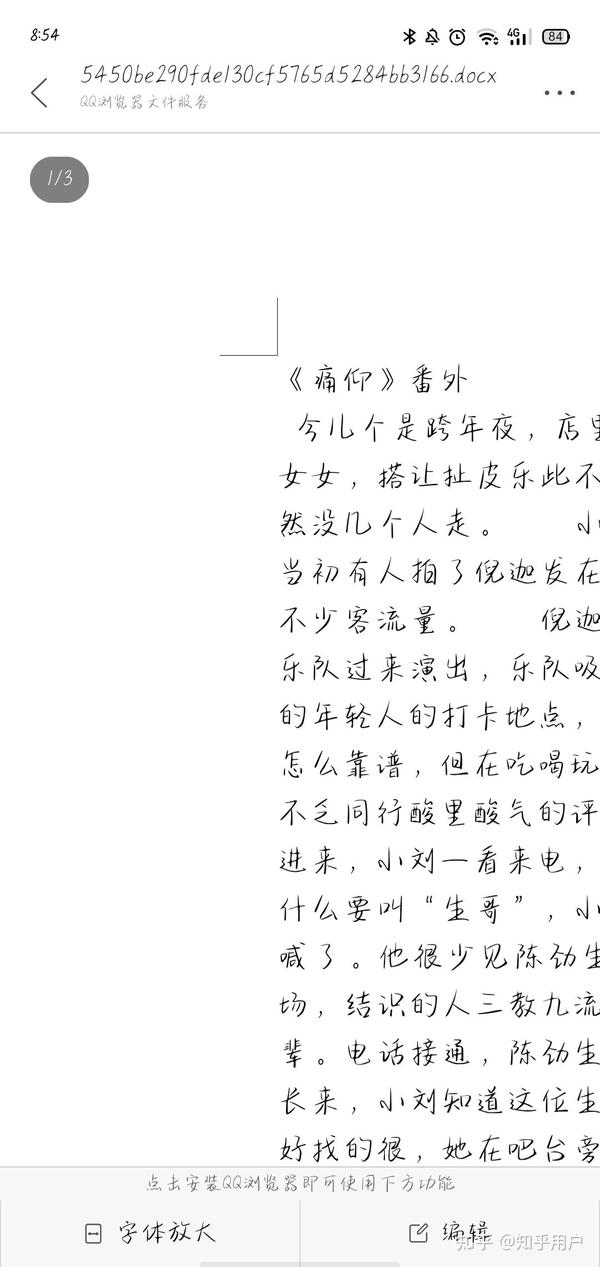 8:54
4G 84
5450be290fde130cf5765d5284bb3166.docx
QQ浏览器文件服务
1/3
《痛仰》番外
今儿个是跨年夜，店里
女女，搭讪扯皮乐此不
然没几个人走。 小
当初有人拍了倪迦发在
不少客流量。 倪迦
乐队过来演出，乐队吸
的年轻人的打卡地点，
怎么靠谱，但在吃喝玩
不乏同行酸里酸气的评
进来，小刘一看来电，
什么要叫“生哥”，小
喊了。他很少见陈劲生
场，结识的人三教九流
辈。电话接通，陈劲生
长来，小刘知道这位生
好找的很，她在吧台旁
点击安装QQ浏览器即可使用下方功能
字体放大
编辑
知乎 @知乎用户